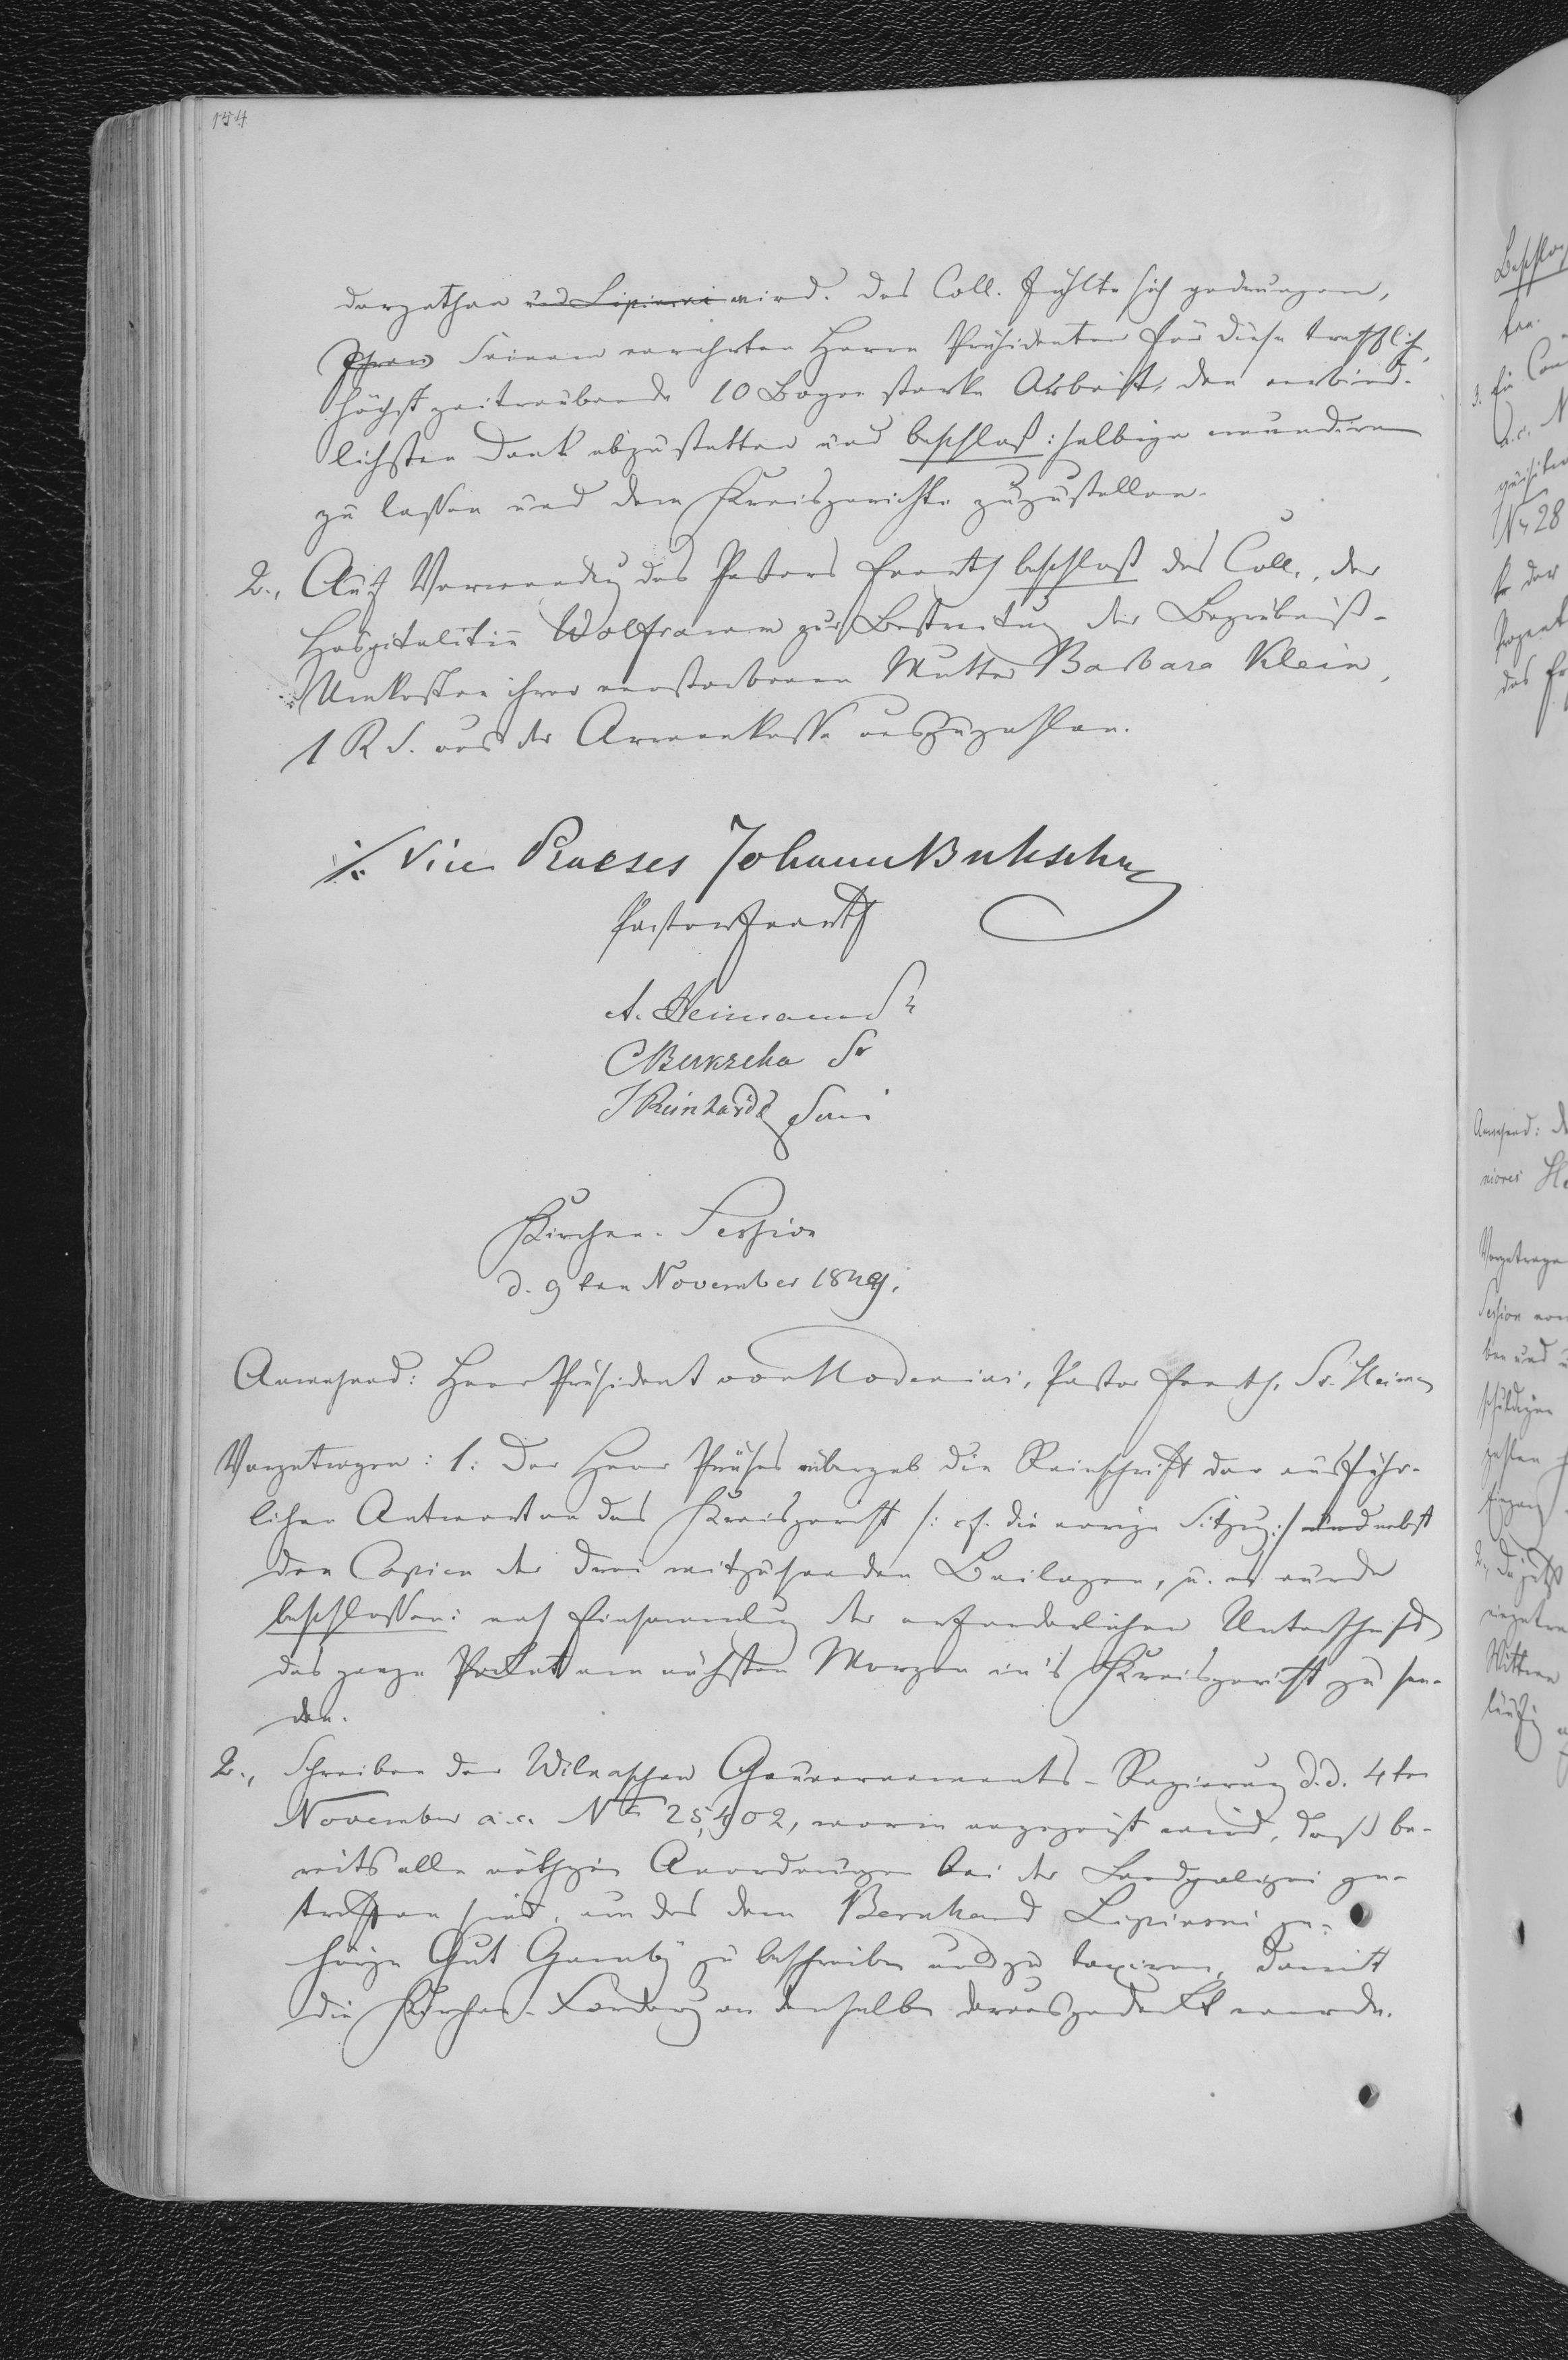 154
dargethan und Lipinski wird. Das Coll. fühlte sich gedrungen,
Ihren Seinem verehrten Herrn Präsidenten für diese trefflich,
höchst zeitraubende 10 Bogen starke Arbeit, den verbind-
lichsten Dank abzustatten und beschloß: selbige mundiren
zu lassen und dem Kreisgerichte zuzustellen.
2., Auf Verwendung des Pastors beschloß das Coll., der
Hospitalitin Wolframm zur Bestreitung der Begräbniß-
Unkosten ihrer verstorbenen Mutter Barbara Klein,
1 R S. aus der Armenkasse auszuzahlen.
Vice Praeses Johann Buksch
Pastor
A. Heimann Sr
C Bukscha Sr
J Reinhardt Seni
Kirchen-Session
d. 9ten November 1849.
Anwesend: Herr Präsident von Moderini, Pastor Sr. Heiman
Vorgetragen: 1: Der Herr Präses übergab die Reinschrift der ausführ-
lichen Antwort an das Kreisgericht /: cf. die vorige Sitzung :/ und nebst
den Copien der drei mitzusendenden Beilagen, u. es wurde
beschlossen: nach Einsammlung der erforderlichen Unterschriften
das ganze Packet am nächsten Morgen in's Kreisgericht zu sen-
den.
2., Schreiben der Wilnaschen Gouvernements-Regierung d.d. 4ten
November a.c. No 25,402, worin angezeigt wird, daß be-
reits alle nöthigen Anordnungen bei der Landpolizei ge-
troffen sind, um das dem Bernhard Lipinski ge-
hörige Gut zu beschreiben und zu taxiren, damit
die Kirchen-Forderung an denselben daraus gedeckt werde.